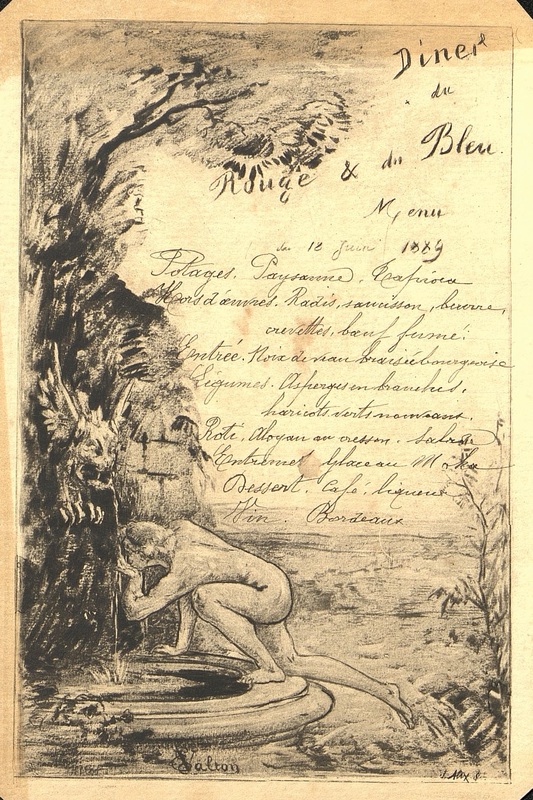 Diner
du
Rouge & du Bleu.
Menu
du 18 Juin 1889
Potages. Paysanne, Tapioca
Hors d'œuvres. Radis, saucisson, beurre,
crevettes, bœuf fumé.
Entrée. Noix de veau braisée bourgeoise
Légumes. Asperges en branches,
haricots verts nouveaux.
Roti. Aloyau au cresson. Salade
Entremet. glace au Moka
Dessert. Café, liqueurs
Vin. Bordeaux
Valton